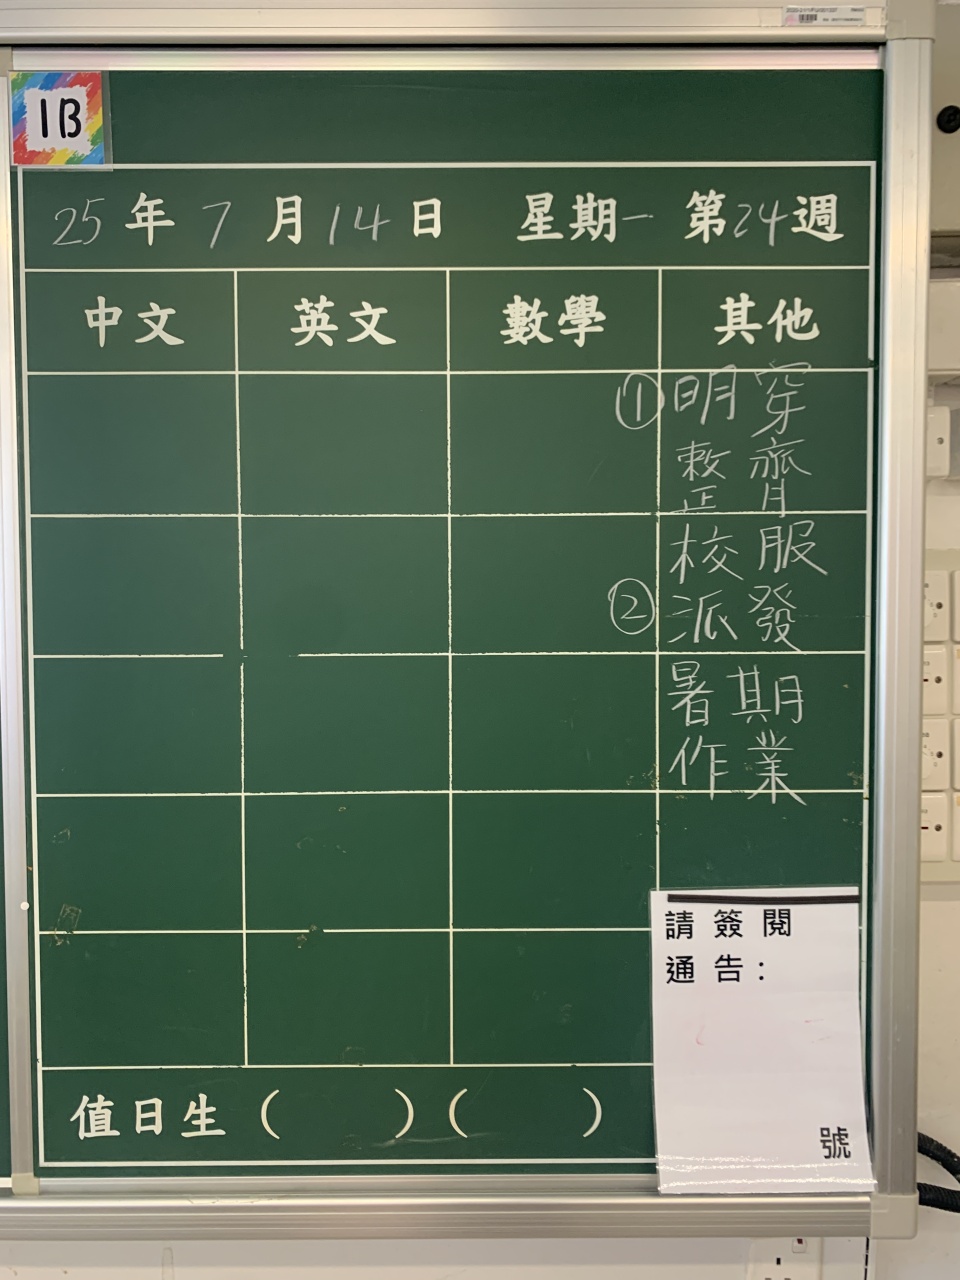 1B
25年7月14日 星期一 第24週
中文 英文 數學 其他
①明穿
整齊
校服
②派發
暑期
作業
請簽閱
通告：
號
值日生（ ）（ ）